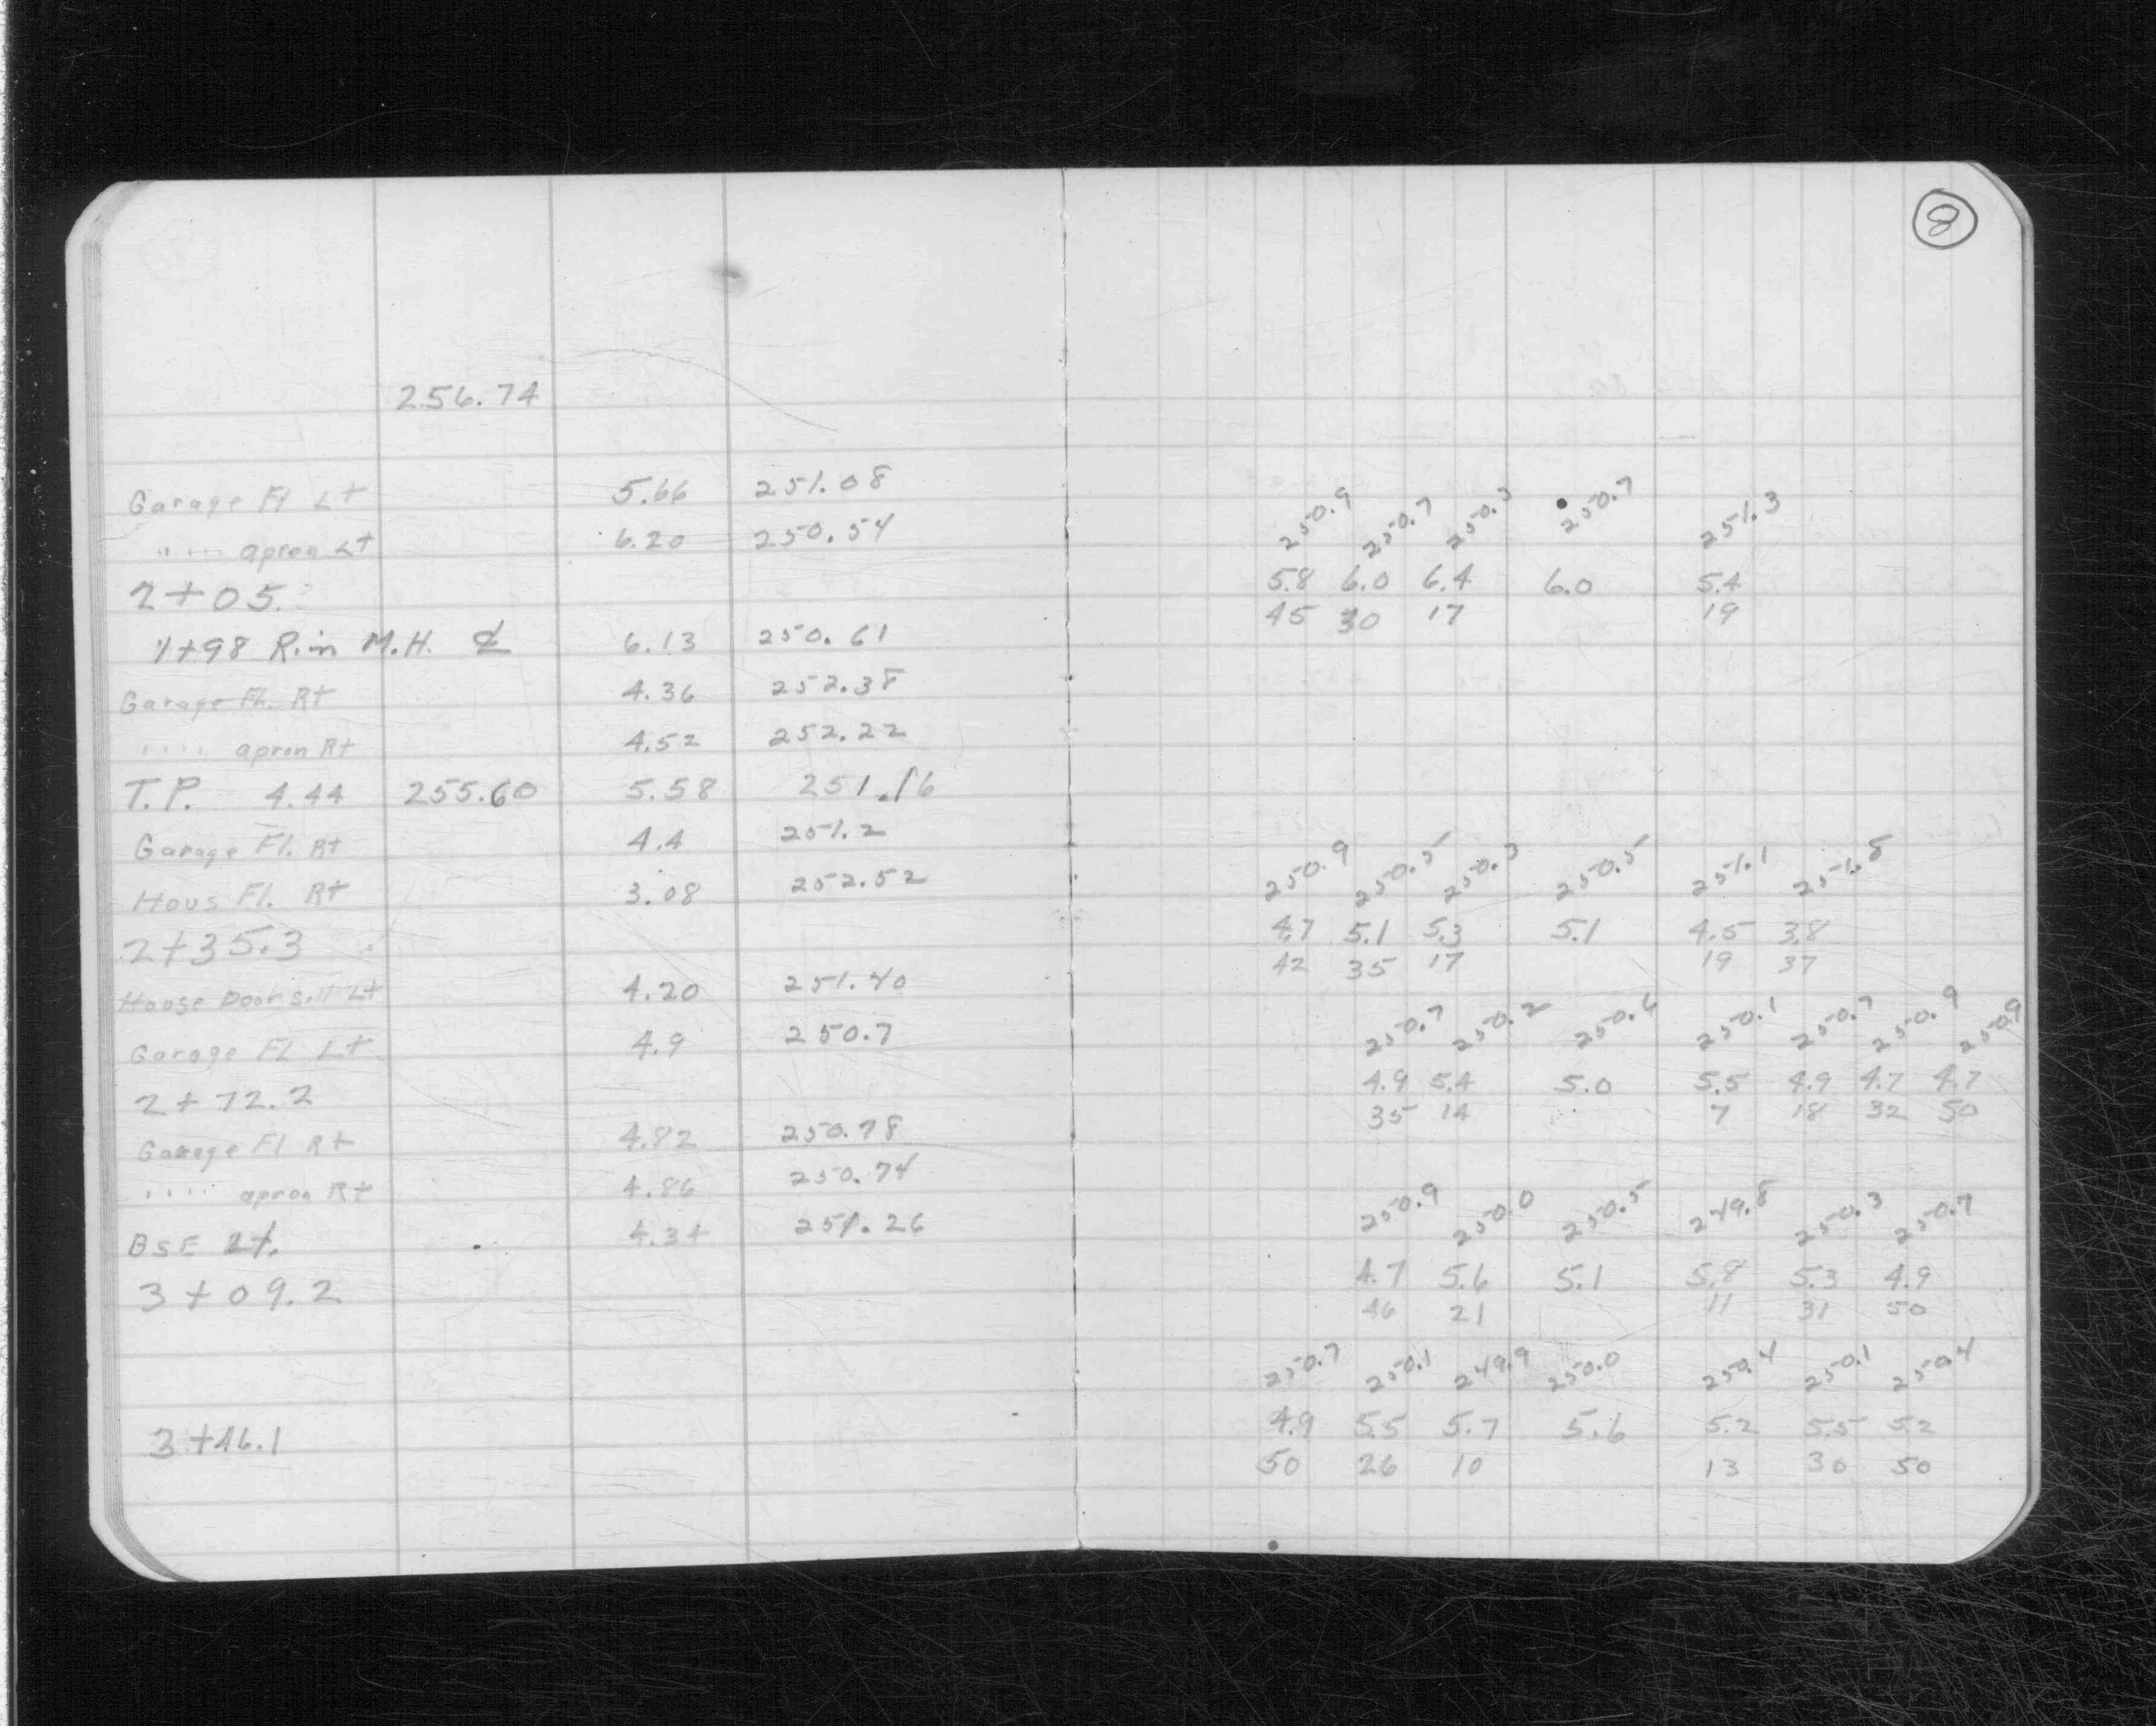 8
256.74
Garage Fl Lt 5.66 251.08
" " apron Lt 6.20 250.54
250.9 250.7 250.3 250.7 251.3
2+05 5.8 6.0 6.4 6.0 5.4
45 30 17 19
1+98 Rim M.H. ℄ 6.13 250.61
Garage Fl. Rt 4.36 252.38
" " apron Rt 4.52 252.22
T.P. 4.44 255.60 5.58 251.16
Garage Fl. Rt 4.4 251.2
Hous Fl. Rt 3.08 252.52
250.9 250.5 250.3 250.5 251.1 251.8
2+35.3 4.7 5.1 5.3 5.1 4.5 3.8
42 35 17 19 37
House Door Sill Lt 4.20 251.40
Garage Fl Lt 4.9 250.7
250.7 250.2 250.6 250.1 250.7 250.9 250.9
2+72.2 4.9 5.4 5.0 5.5 4.9 4.7 4.7
35 14 7 18 32 50
Garage Fl Rt 4.82 250.78
" " apron Rt 4.86 250.74
BSE Lt. 4.34 251.26
250.9 250.0 250.5 249.8 250.3 250.7
3+09.2 4.7 5.6 5.1 5.8 5.3 4.9
46 21 11 31 50
250.7 250.1 249.9 250.0 250.4 250.1 250.4
3+46.1 4.9 5.5 5.7 5.6 5.2 5.5 5.2
50 26 10 13 30 50